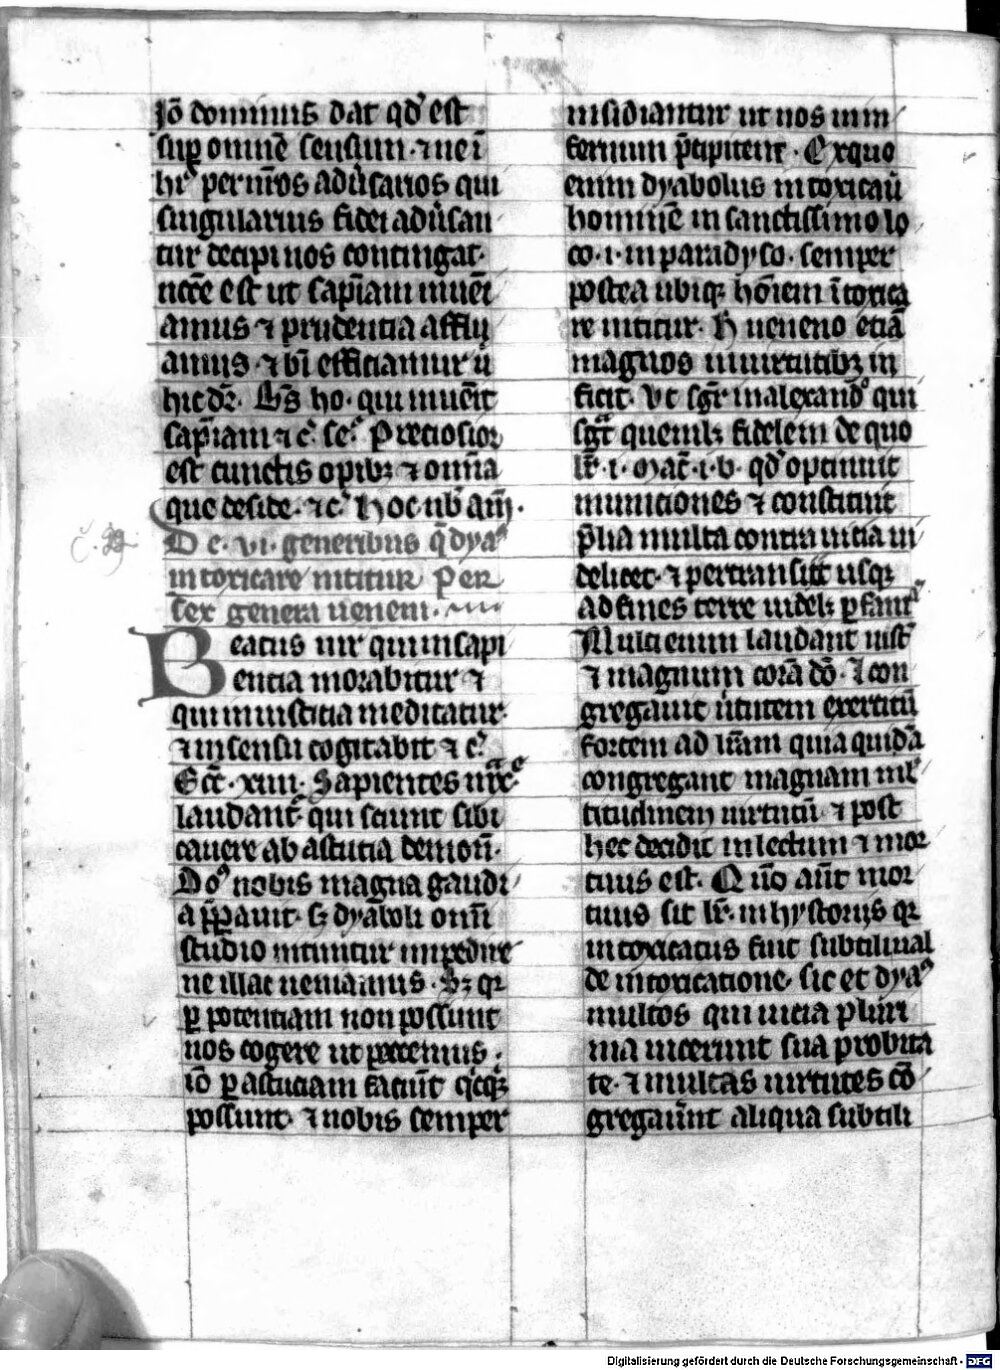 Jō dominus dat qd' est
sup omnē sensum · ⁊ ne ī
hiis per nr̄os adūsarios qui
singularius fidei adūsan
tur decipi nos contingat·
nccē est ut sapīam inueī
amus ⁊ prudentia afflu
amus · ⁊ bī efficiamur ū
hic dr̄. Bs̄ ho· qui inuēit
sapīam ⁊ c̄. se. Preciosior
est cunctis opibꝫ ⁊ omīa
que deside· ⁊c̄ hoc ub̄
De · vi · generibus q̄ dya
intoxicare nititur per
sex genera ueneni·
Beatus uir qui in sapi
entia morabitur ⁊
qui in iusticia meditatur·
⁊ in sensu cogitabit ⁊ c̄.
Ecc̄· xiiii· Sapientes
laudant̄ qui sciunt sibi
cauere ab astutia demon̄·
Do⁹ nobis magna gaudi
a ꝑꝑauit· sꝫ dyaboli omī
studio nituntur impedire
ne illac ueniamus · Sꝫ qꝛ
ꝑ potentiam non possunt
nos cogere ut peccemus ·
iō ꝑ astutiam faciūt qcqꝫ
possunt· ⁊ nobis semper
insidiantur ut nos in in
fernum p̄cipitent · Ex quo
enim dyabolus intoxicauī
hominē in sanctissimo lo
co · i · in paradyso · semper
postea ubiqꝫ hōiem ītoxica
re nititur· H ueneno etiā
magnos in uirtutibꝫ in
ficit· Ut sgr̄ in alexandº qui
sgt̄ quemlꝫ fidelem de quo
lr̄ · i · Mac̄ · i · b· qd' optinuit
municiones ⁊ constituit
p̄lia multa contra uicia ui
delicet· ⁊ pertransiit usqꝫ
ad fines terre uidelꝫ ꝑ
Multi enim laudant iust
⁊ magnum corā dō· ⁊ con
gregauit ūtutem exercitū
fortem ad lr̄am quia quidā
congregant magnam ml
titudinem uirtutū ⁊ post
hec decidit in lectum ⁊ mor
tuus est· Quō aūt mor
tuus sit lr̄· in hystoriis qꝛ
intoxicatus fuit subtili ual
de intoxicatione· sic et dya
multos qui uicia pluri
ma uicerunt sua probita
te· ⁊ multas uirtutes cō
gregauer̄nt aliqua subtili
Digitalisierung gefördert durch die Deutsche Forschungsgemeinschaft - DFG